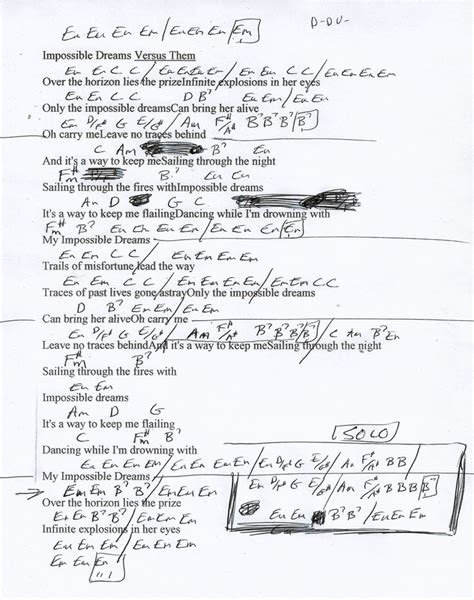 Em Em Em Em / Em Em Em / Em
D-DU-
Impossible Dreams Versus Them
Em Em C C / Em Em Em Em / Em Em C C / Em Em Em Em
Over the horizon lies the prizeInfinite explosions in her eyes
Em Em C C D B7 Em Em / Em Em
Only the impossible dreamsCan bring her alive
Em D/F# G E/G# / Am F#/A# B7 B7 B7 / B7
Oh carry meLeave no traces behind
C Am B7 Em
And it's a way to keep meSailing through the night
F#m B7 Em Em
Sailing through the fires withImpossible dreams
Am D G C
It's a way to keep me flailingDancing while I'm drowning with
F#m B7 Em Em Em Em / Em Em Em / Em
My Impossible Dreams
Em Em C C / Em Em Em Em
Trails of misfortune lead the way
Em Em C C / Em Em Em Em / Em Em C C
Traces of past lives gone astrayOnly the impossible dreams
D B7 Em Em / Em Em
Can bring her aliveOh carry me
Em D/F# G E/G# / Am F#/A# B7 B7 B7 B7 / C Am B7 Em
Leave no traces behindAnd it's a way to keep meSailing through the night
F#m B7
Sailing through the fires with
Em Em
Impossible dreams
Am D G
It's a way to keep me flailing
C F#m B7
Dancing while I'm drowning with
SOLO
Em Em Em Em / Em Em Em Em / Em D/F# G E/G# / Am F#/A# B B
My Impossible Dreams
Em D/F# G E/G# / Am F#/A# B B B B
→ Em Em B7 B7 / Em Em Em
Over the horizon lies the prize
Em Em B7 B7 / Em Em Em
Em Em B7 B7 / Em Em Em
Infinite explosions in her eyes
Em Em Em Em / Em Em Em
Em Em Em